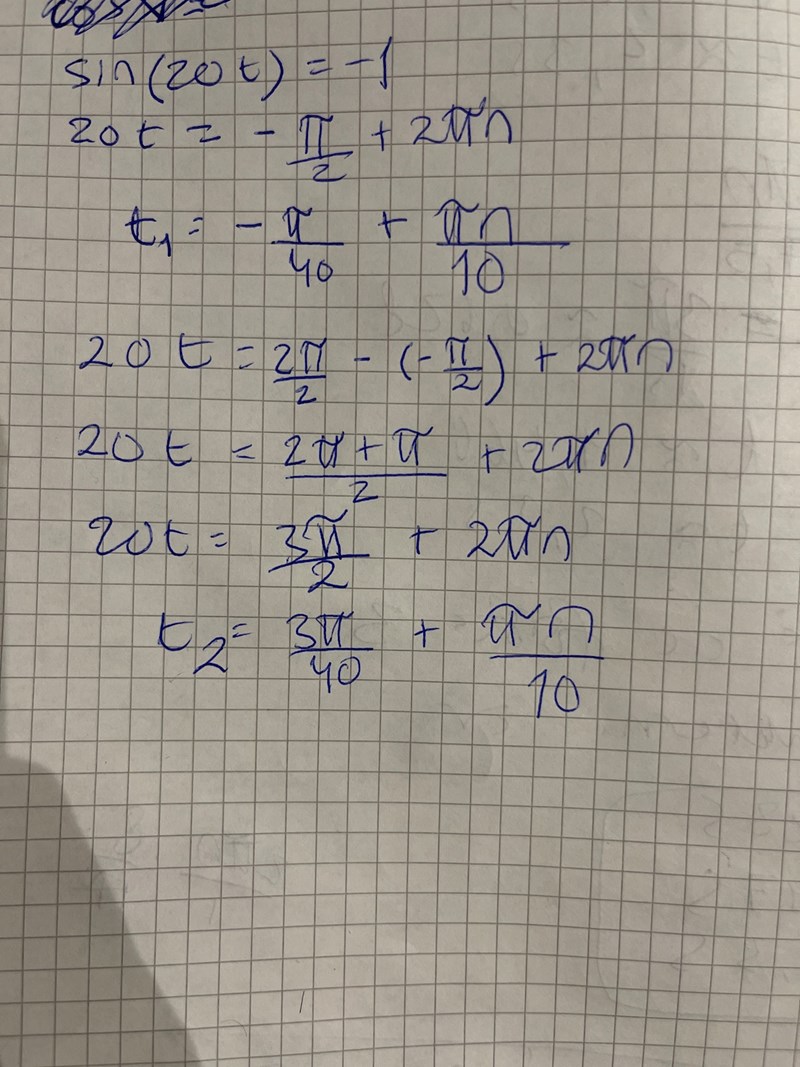 sin(20t) = -1
20t = - π/2 + 2πn
t₁ = - π/40 + πn/10
20t = 2π/2 - (-π/2) + 2πn
20t = (2π + π)/2 + 2πn
20t = 3π/2 + 2πn
t₂ = 3π/40 + πn/10